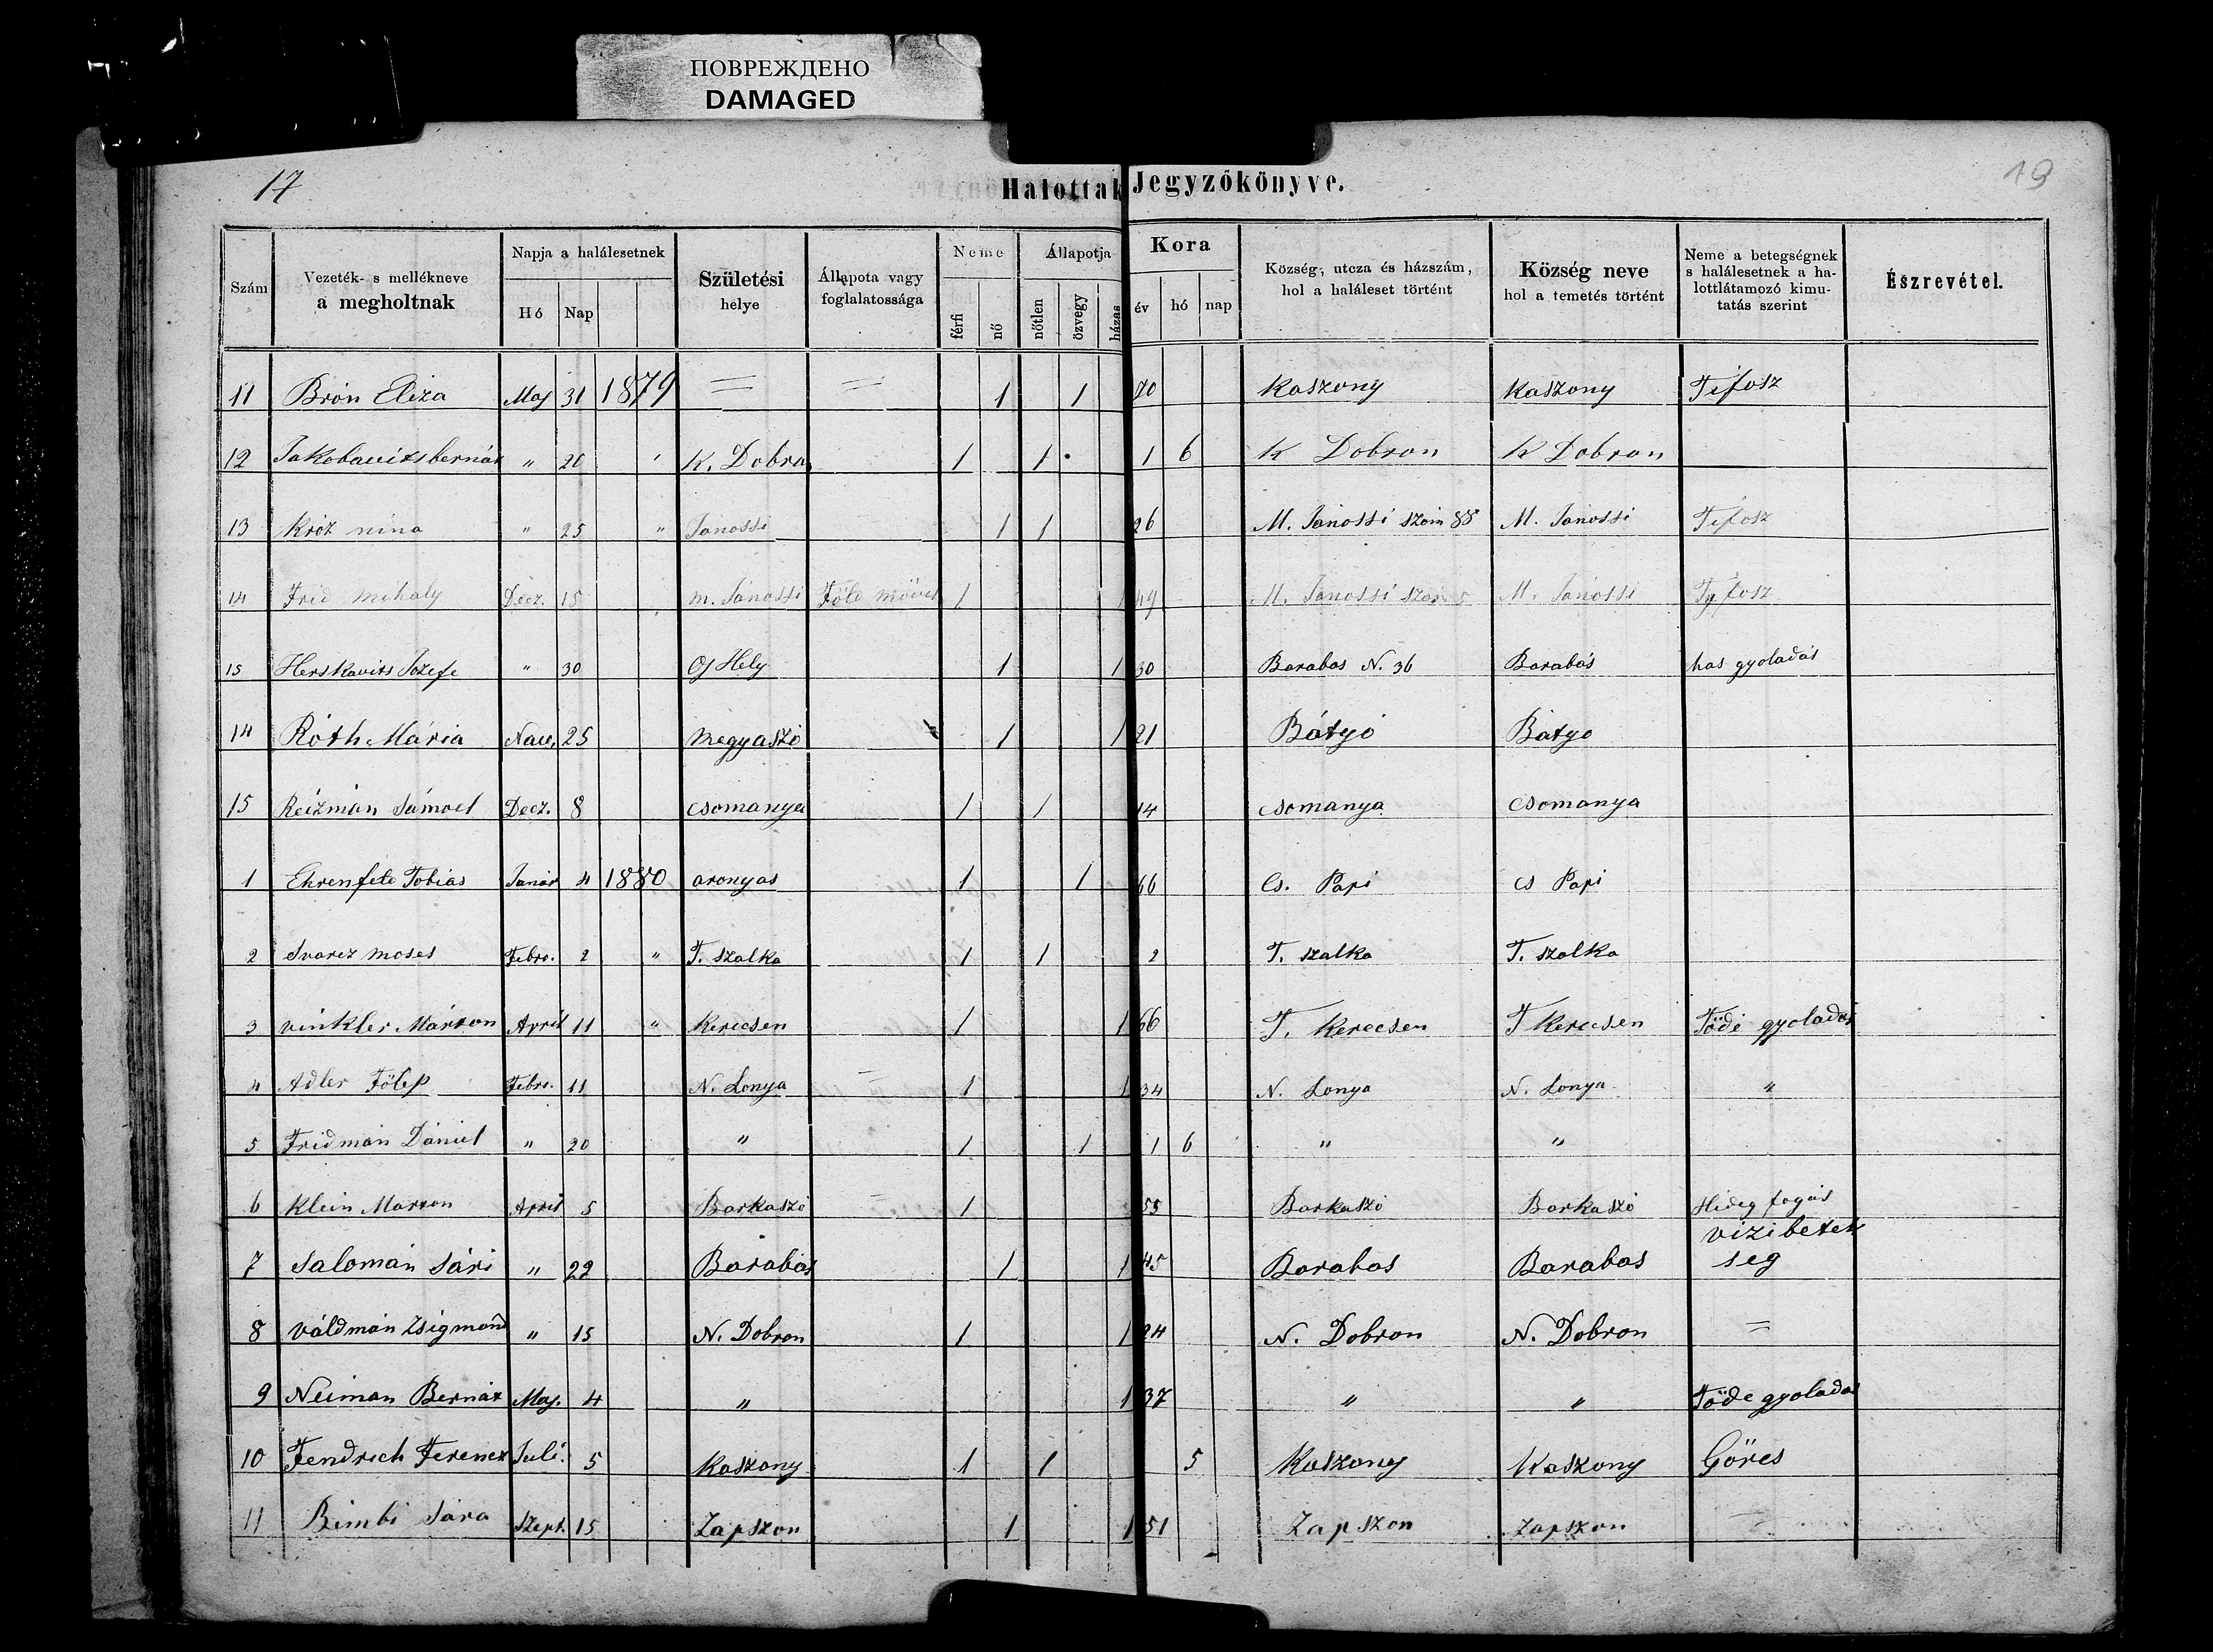 ПОВРЕЖДЕНО
DAMAGED
17
19
Halottak Jegyzőkönyve.
Szám
Vezeték- s mellékneve
a megholtnak
Napja a halálesetnek
Hó
Nap
Születési
helye
Állapota vagy
foglalatossága
Neme
férfi
nő
Állapotja
nőtlen
özvegy
házas
Kora
év
hó
nap
Község, utcza és házszám,
hol a haláleset történt
Község neve
hol a temetés történt
Neme a betegségnek
s halálesetnek a ha-
lottlátamozó kimu-
tatás szerint
Észrevétel.
11 Brón Eliza Maj 31 1879 = = 1 1 70 Kaszony Kaszony Tifosz
12 Jakobavitsbernát " 20 " K. Dobron 1 1 1 6 K Dobron K Dobron
13 Króz nina " 25 " Janossi 1 1 26 M. Janossi szám 88 M. Janossi Tifosz
14 Frid mihaly Decz. 15 m. Jánossi Föld möves 1 1 49 M. Janossi szám 5 M. Jánossi Tyfosz
15 Herskavits Jozefe " 30 Oj Hely 1 1 30 Barabas N. 36 Barabás has gyoladás
14 Róth Mária Nau, 25 megyaszó 1 1 21 Bátyó Bátyo
15 Reizmán Sámoel Decz. 8 csomanya 1 1 14 csomanya csomanya
1 Ehrenfeld Tobiás Janár 4 1880 aronyas 1 1 66 Cs. Papi cs Papi
2 Svarcz moses Febro. 2 " T. szalka 1 1 2 T. szalka T. szalka
3 vinkler Márton April 11 " Kerecsen 1 1 66 T. Kerecsen T Kerecsen Tödö gyoladás
4 Adler Fölep Febro. 11 N. Lonya = 1 1 34 N. Lonya N. Lonya "
5 Fridmán Dániel " 20 " 1 1 1 6 " "
6 Klein Marton April 5 Barkaszó 1 55 Barkaszó Barkaszó Hideg fogás
7 Salomán Sári " 29 Barabás 1 1 45 Barabas Barabas vizibetek
seg
8 váldmán Zsigmond " 15 N. Dobron 1 1 24 N. Dobron N. Dobron =
9 Neiman Bernát Maj. 4 " 1 37 " " Töde gyolados
10 Fendrich Ferencz Juli. 5 Kaszony 1 1 5 Kaszony Kaszony Göres
11 Bimbi Sára Szept. 15 Zapszon 1 1 51 Zapszon Zapszon